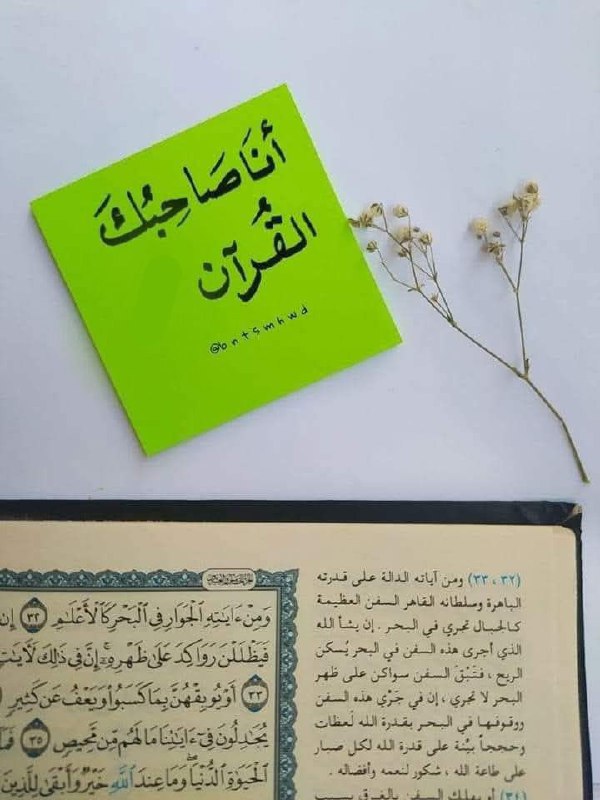 أَنَا صَاحِبُكَ
القُرآن
(٣٢ ، ٣٣) ومن آياته الدالة على قدرته
الباهرة وسلطانه القاهر السفن العظيمة
كالجبال تجري في البحر . إن يشأ الله
الذي أجرى هذه السفن في البحر يُسكن
الريح ، فتَبْقَ السفن سواكن على ظهر
البحر لا تجري ، إن في جَرْي هذه السفن
ووقوفها في البحر بقدرة الله لَعظات
وحججاً بيِّنة على قدرة الله لكل صبار
على طاعة الله ، شكور لنعمه وأفضاله .
(٣٤) أو يهلك السفن بالغرق بسبب
وَمِنْ ءَايَٰتِهِ ٱلْجَوَارِ فِى ٱلْبَحْرِ كَٱلْأَعْلَٰمِ ٣٢ إِن
فَيَظْلَلْنَ رَوَاكِدَ عَلَىٰ ظَهْرِهِۦٓ إِنَّ فِى ذَٰلِكَ لَءَايَٰتٍ
٣٣ أَوْ يُوبِقْهُنَّ بِمَا كَسَبُوا۟ وَيَعْفُ عَن كَثِيرٍ
يُجَٰدِلُونَ فِىٓ ءَايَٰتِنَا مَا لَهُم مِّن مَّحِيصٍ ٣٥
ٱلْحَيَوٰةِ ٱلدُّنْيَا وَمَا عِندَ ٱللَّهِ خَيْرٌ وَأَبْقَىٰ لِلَّذِينَ